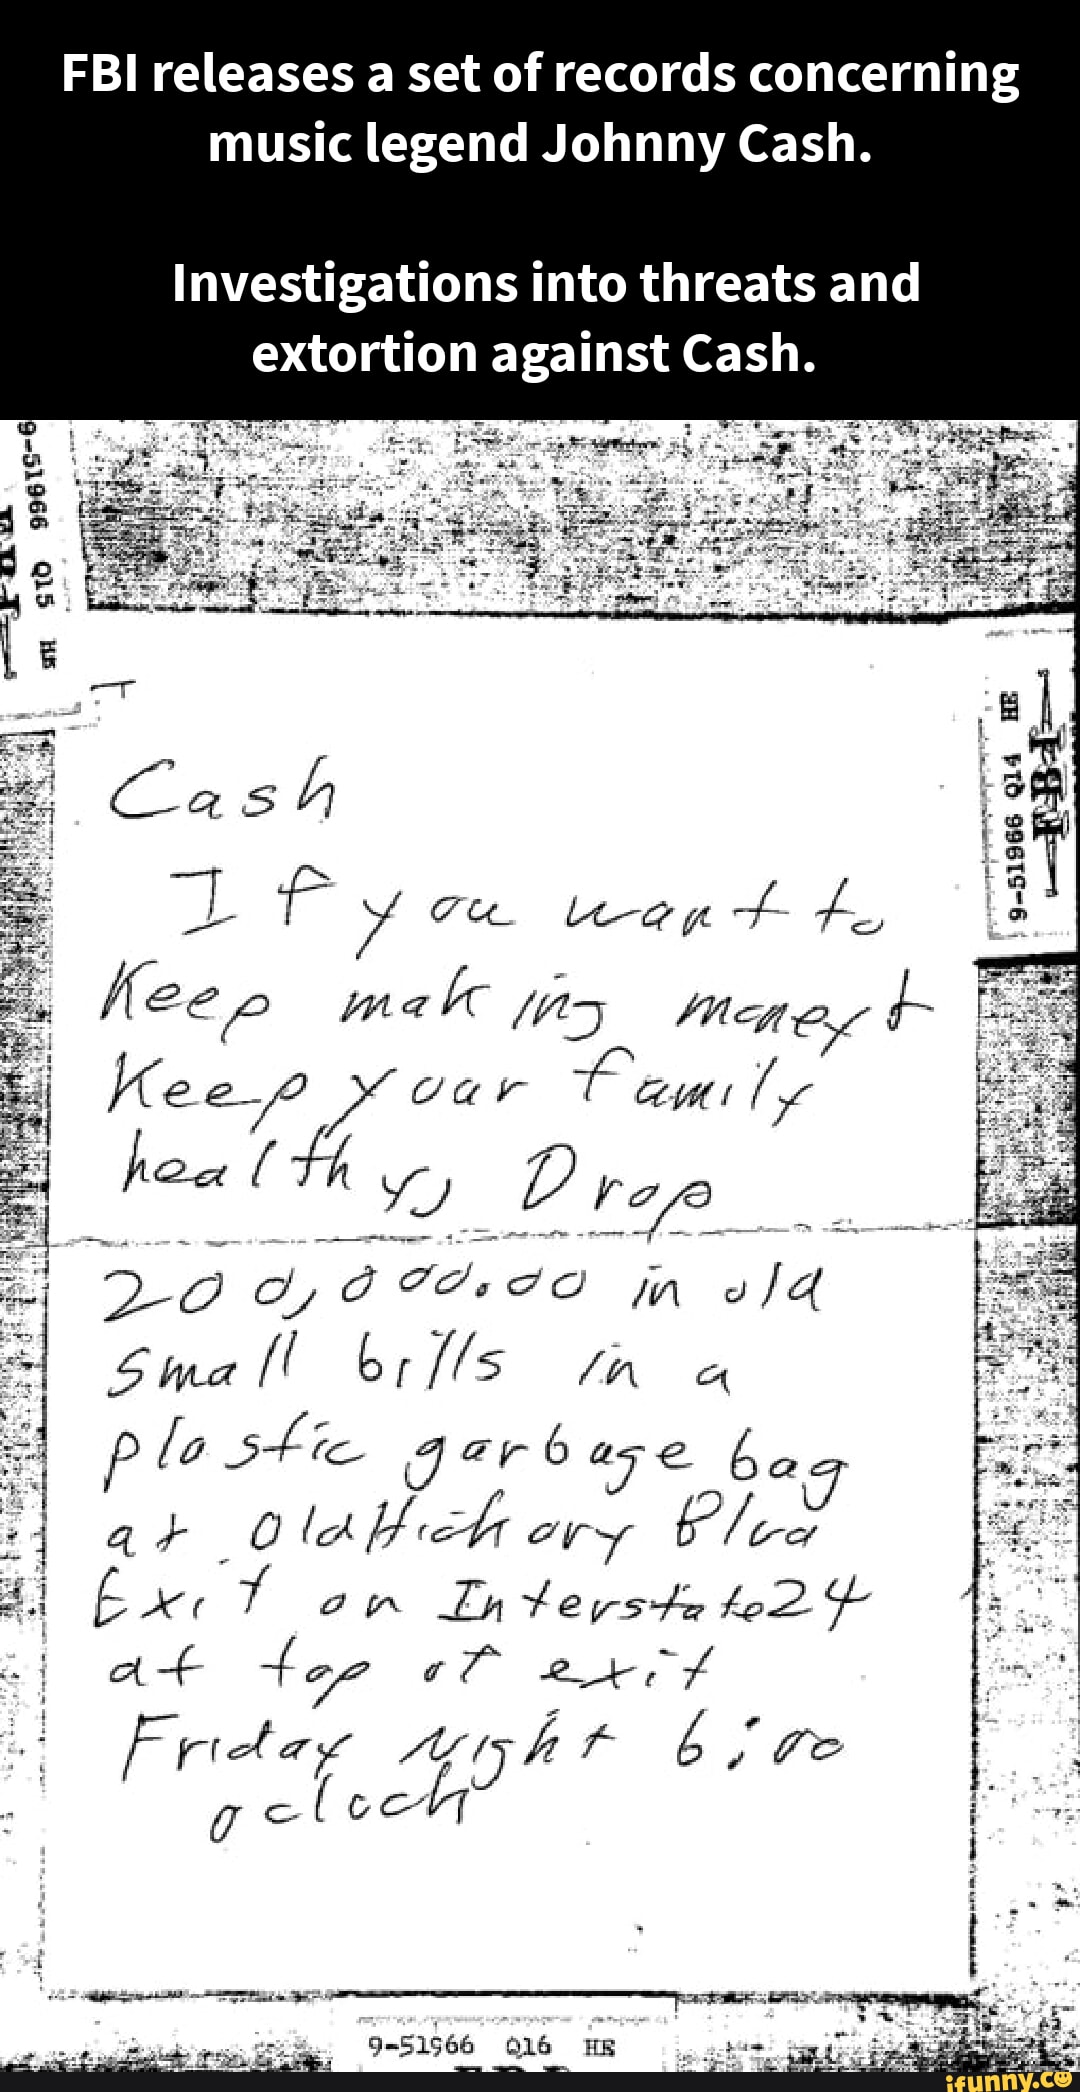 FBI releases a set of records concerning
music legend Johnny Cash.
Investigations into threats and
extortion against Cash.
9-51966 Q15 HE
9-51966 Q14 HE
FBI
Cash
If you want to
Keep making money &
Keep your family
healthy, Drop
200,000.00 in old
small bills in a
plastic garbage bag
at Old Hickory Blvd
Exit on Interstate 24
at top of exit
Friday Night 6:00
oclock
9-51966 Q16 HE
ifunny.co